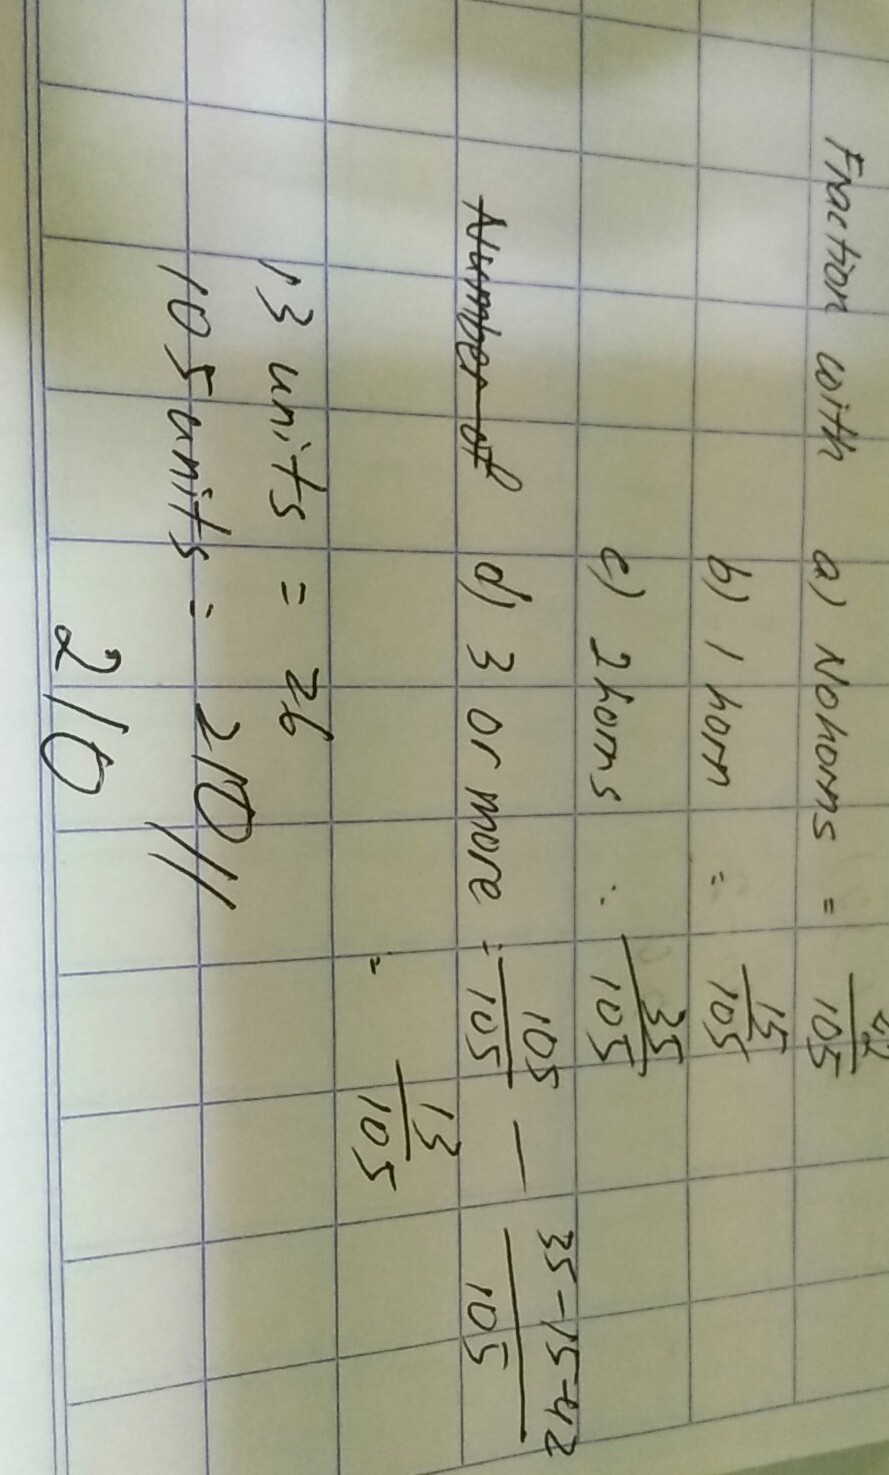 Fraction with a) No horns = 42/105
b) 1 horn = 15/105
c) 2 horns : 35/105
Number of d) 3 or more = 105/105 - 35-15-42/105
= 13/105
13 units = 26
105 units = 210//
210